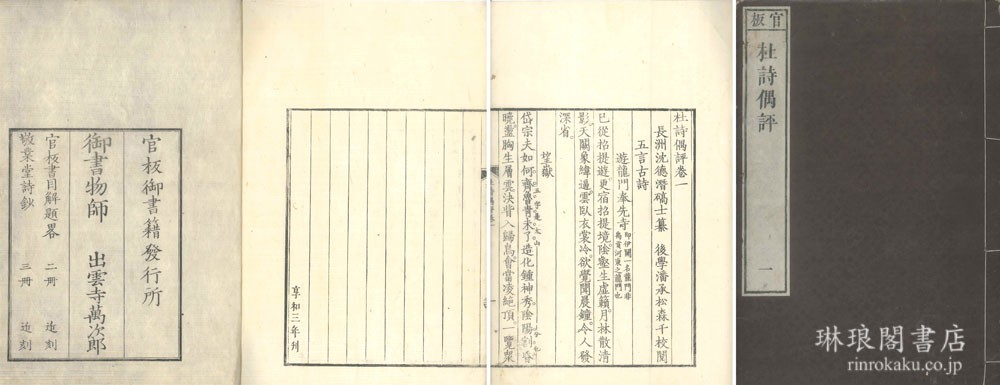 官板御書籍發行所
御書物師 出雲寺萬次郎
官板書目解題畧 二冊 近刻
敬業堂詩鈔 三冊 近刻
杜詩偶評卷一
長洲沈德潛碻士纂 後學潘承松森千校閱
五言古詩
遊龍門奉先寺 即伊闕一名龍門非
為省河東之龍門也
已從招提遊更宿招提境陰壑生虛籟月林散清
影天闕象緯逼雲臥衣裳冷欲覺聞晨鐘令人發
深省
望嶽
岱宗夫如何齊魯青未了造化鍾神秀陰陽割昏
曉盪胸生層雲決眥入歸鳥會當凌絕頂一覽衆
享和三年刊
官板
杜詩偶評
一
琳琅閣書店
rinrokaku.co.jp